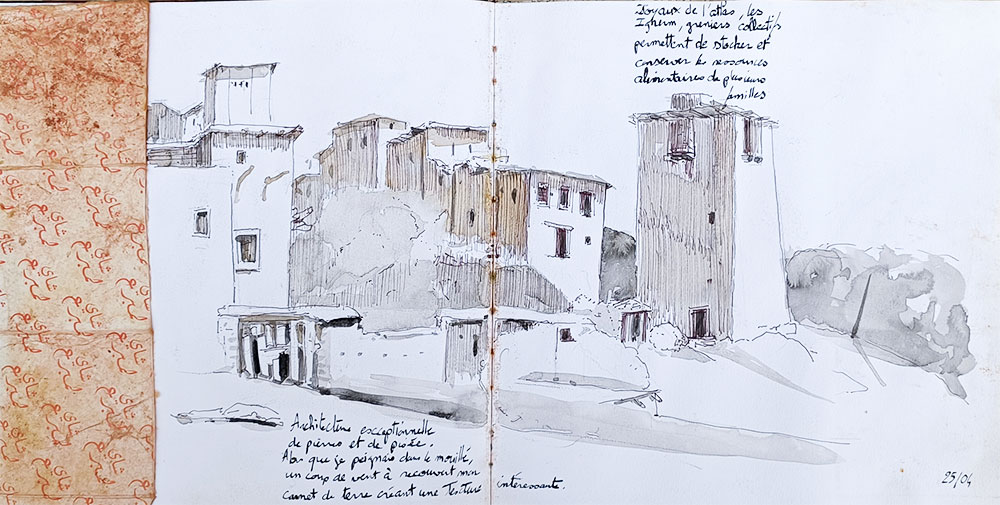 Joyaux de l'atlas, les
Igherm, greniers collectifs
permettent de stocker et
conserver les ressources
alimentaires de plusieurs
familles
Architecture exceptionnelle
de pierres et de pisée.
Alors que je peignais dans le mouillé,
un coup de vent à recouvert mon
carnet de terre créant une texture intéressante.
25/04